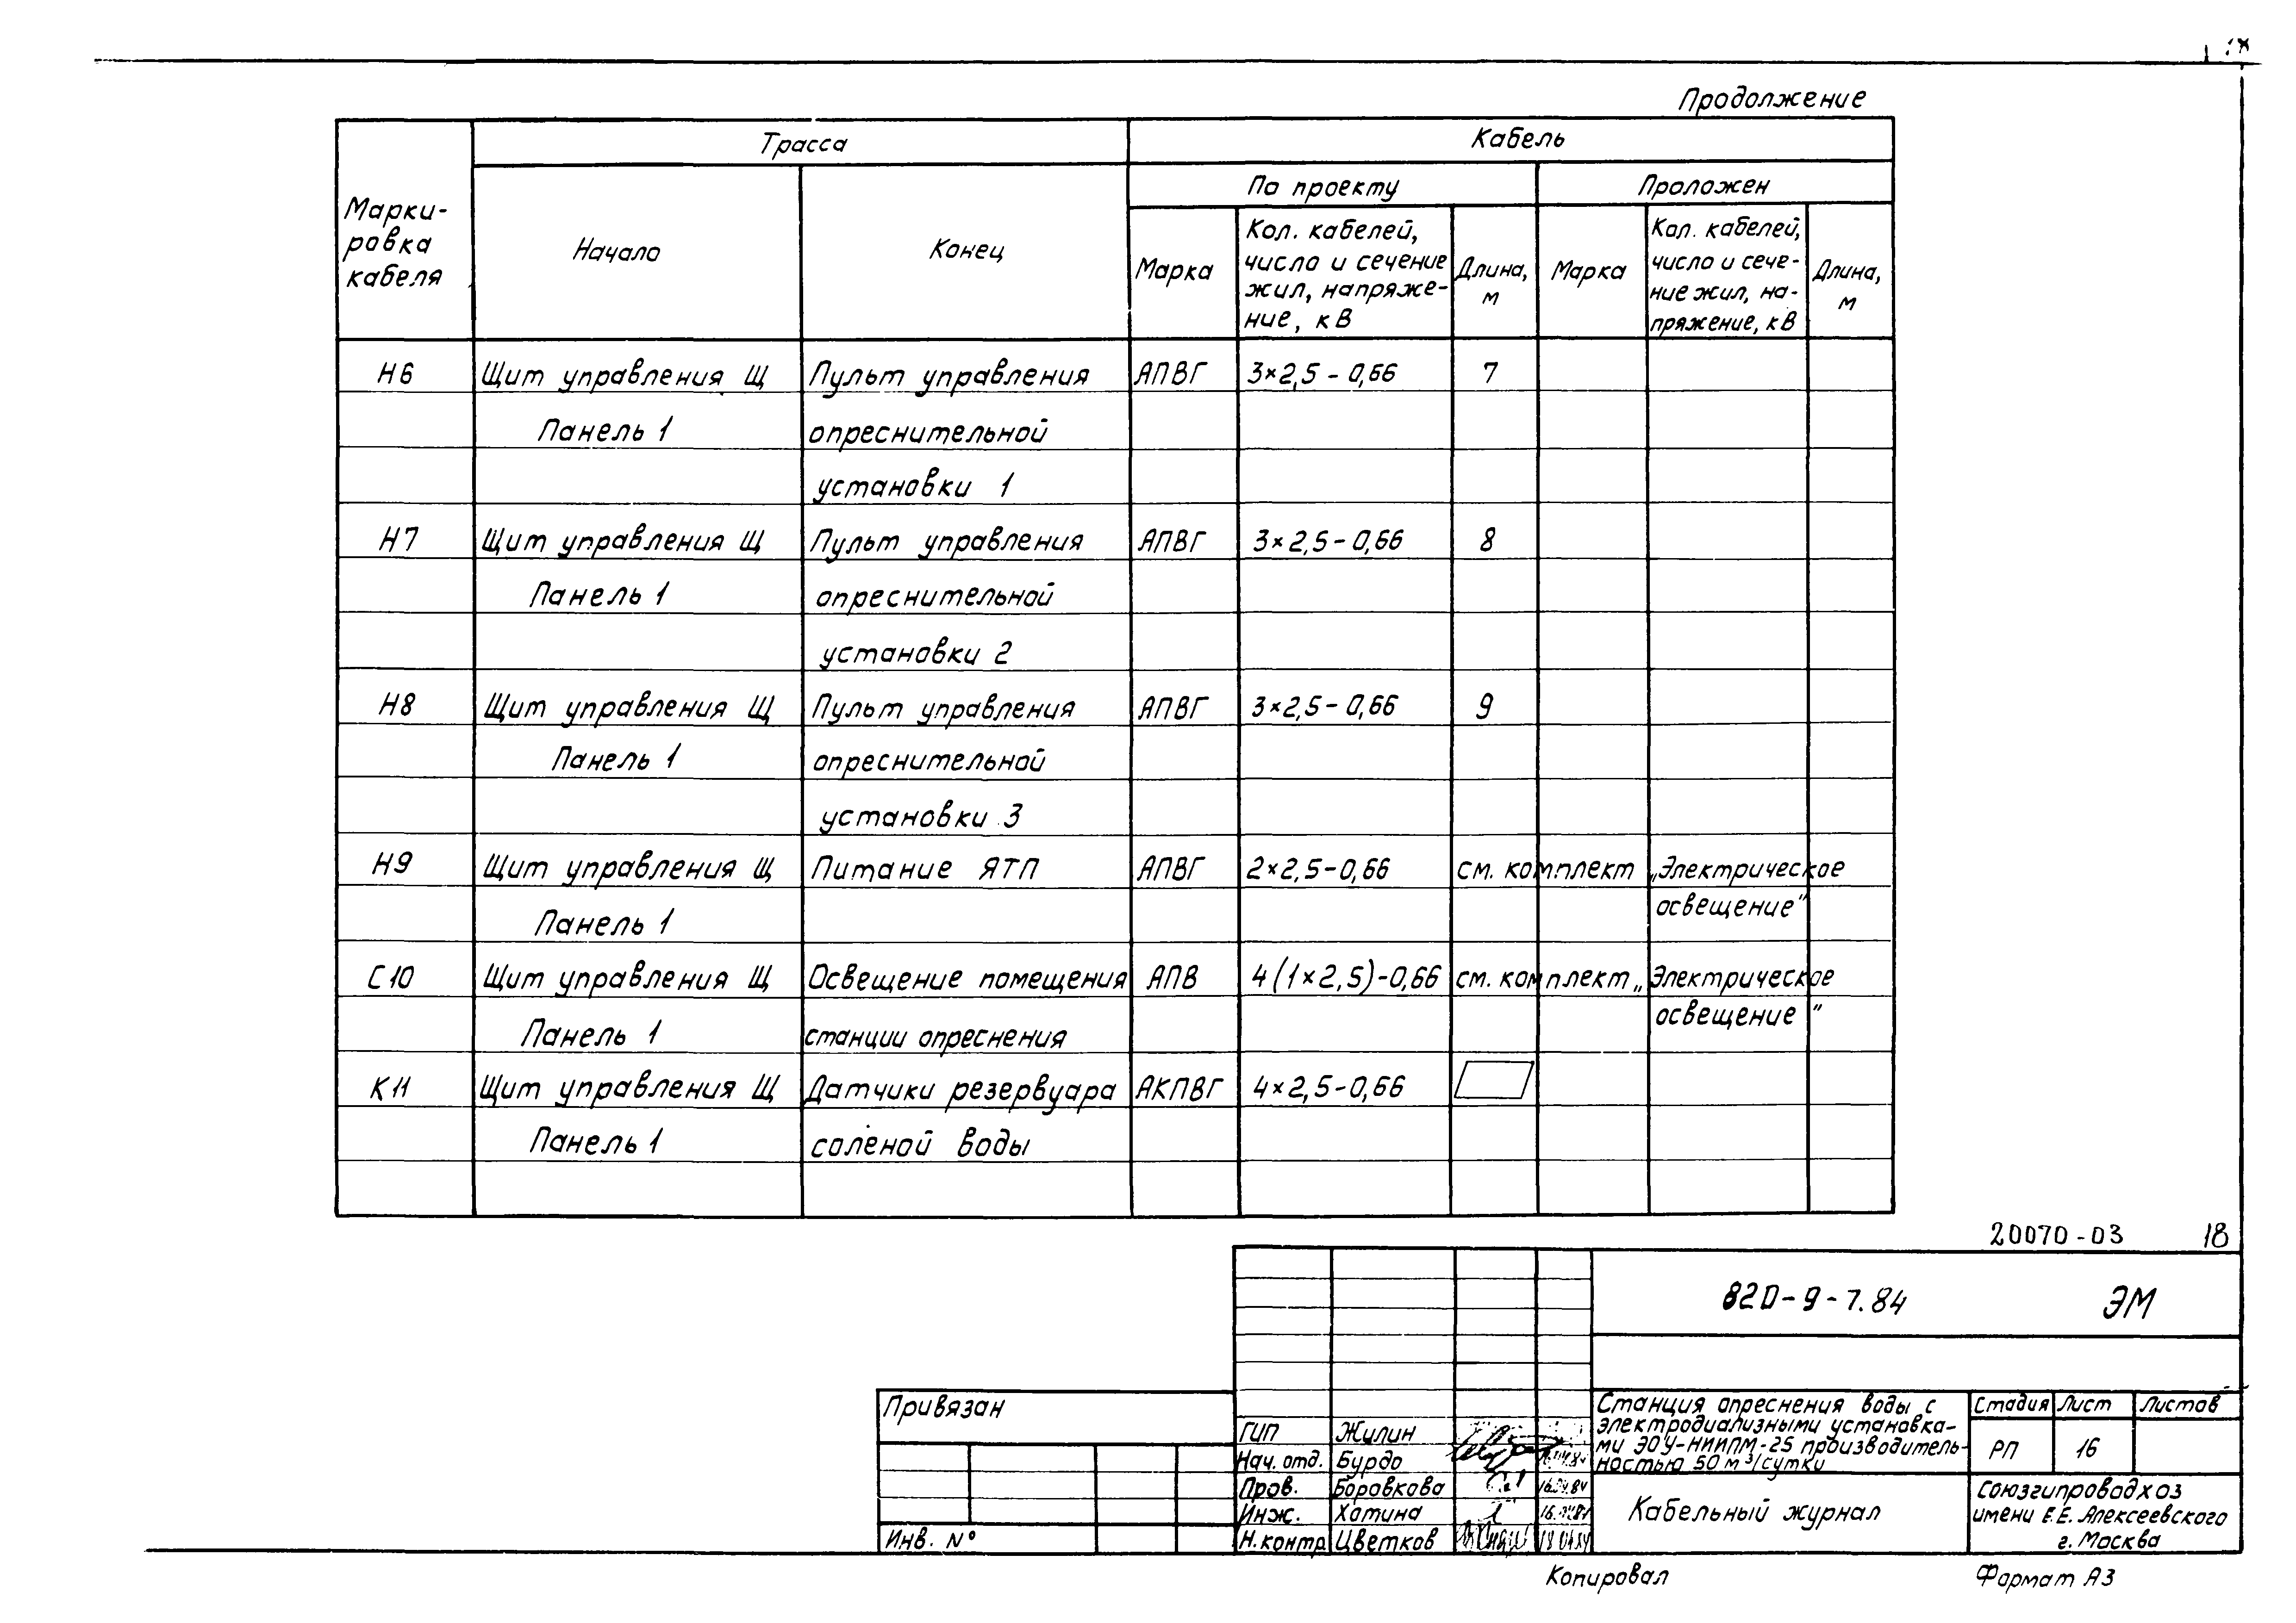 Продолжение
Марки-
ровка
кабеля
Трасса
Кабель
Начало
Конец
По проекту
Проложен
Марка
Кол. кабелей,
число и сечение
жил, напряже-
ние, кВ
Длина,
м
Марка
Кол. кабелей,
число и сече-
ние жил, на-
пряжение, кВ
Длина,
м
Н6 Щит управления Щ Пульт управления АПВГ 3×2,5-0,66 7
Панель 1 опреснительной
установки 1
Н7 Щит управления Щ Пульт управления АПВГ 3×2,5-0,66 8
Панель 1 опреснительной
установки 2
Н8 Щит управления Щ Пульт управления АПВГ 3×2,5-0,66 9
Панель 1 опреснительной
установки 3
Н9 Щит управления Щ Питание ЯТП АПВГ 2×2,5-0,66 см. комплект „Электрическое
Панель 1 освещение"
С10 Щит управления Щ Освещение помещения АПВ 4(1×2,5)-0,66 см. комплект „Электрическое
Панель 1 станции опреснения освещение"
К11 Щит управления Щ Датчики резервуара АКПВГ 4×2,5-0,66
Панель 1 солёной воды
20070-03 18
820-9-7.84 ЭМ
Привязан
Инв. №
ГИП Жилин
Нач. отд. Бурдо
Пров. Боровкова 16.04.84
Инж. Хатина
Н.контр Цветков
Станция опреснения воды с
электродиализными установка-
ми ЭОУ-НИИПМ-25 производитель-
ностью 50 м³/сутки
Стадия Лист Листов
РП 16
Кабельный журнал
Союзгипроводхоз
имени Е.Е. Алексеевского
г. Москва
Копировал
Формат А3